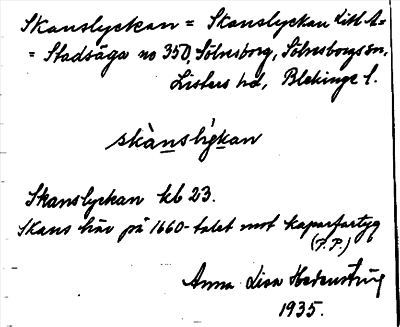 Skanslyckan = Skanslyckan litt A =
= Stadsäga no 350, Sölvesborg, Sölvesborgs sn,
Listers hd, Blekinge l.
skànslýkan
Skanslyckan kb 23.
Skans här på 1660-talet mot kaparfartyg
(F.P.)
Anna Lisa
1935.